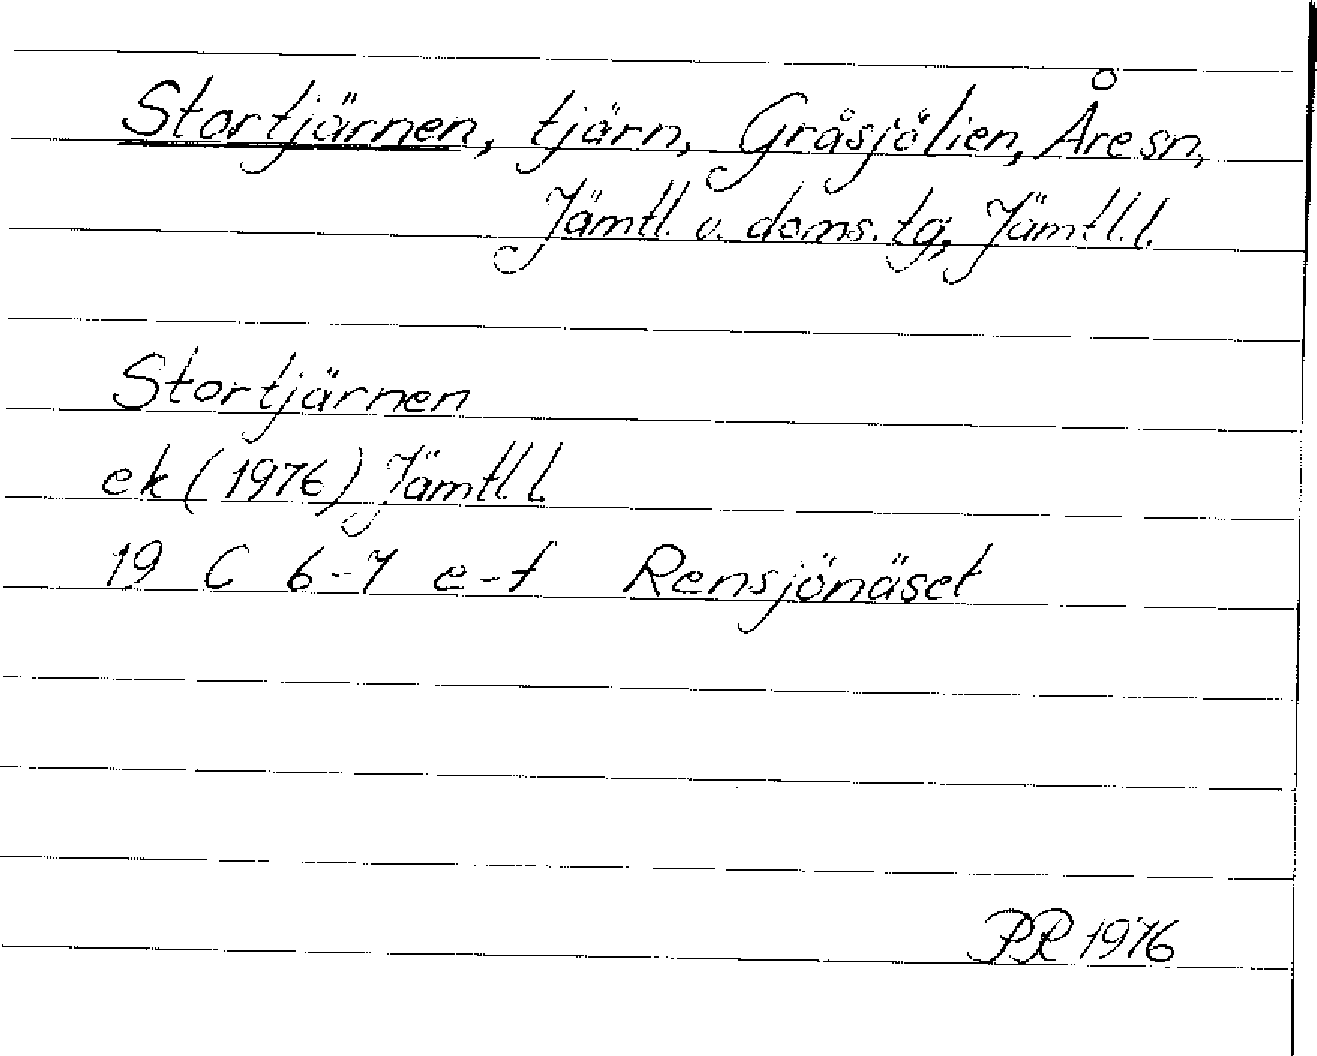 Stortjärnen, tjärn, Gråsjölien, Åre sn,
Jämtl. v. doms. tg, Jämtl. l.
Stortjärnen
ek (1976) Jämtl. l.
19 C 6-7 e-f Rensjönäset
PR 1976